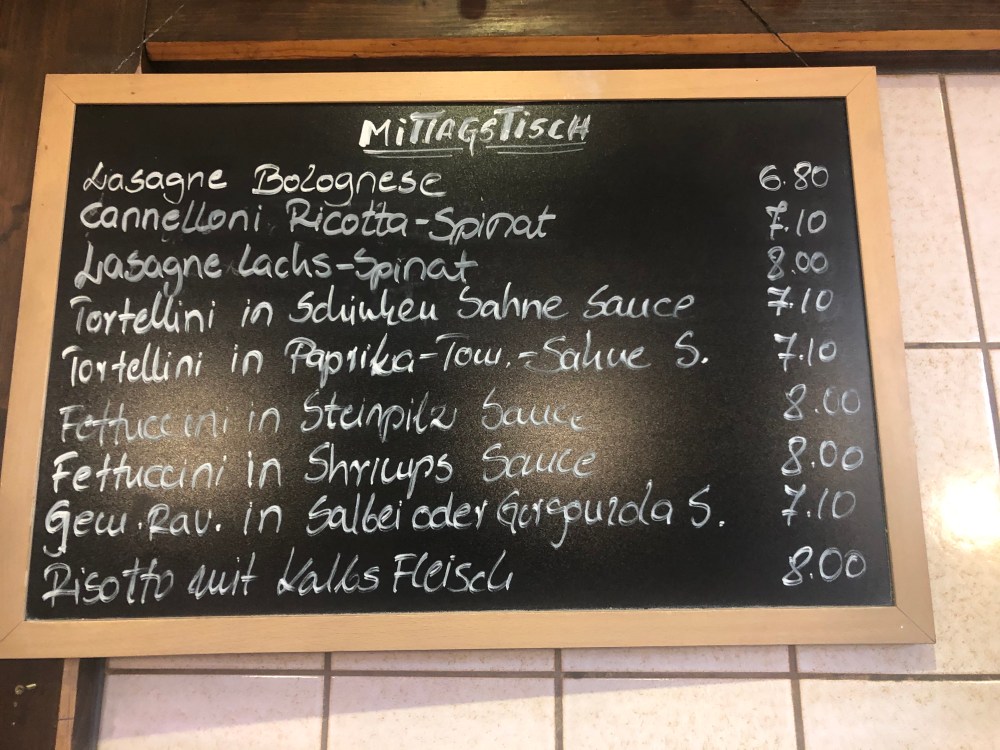 MITTAGSTISCH
Lasagne Bolognese 6.80
Cannelloni Ricotta-Spinat 7.10
Lasagne Lachs-Spinat 8.00
Tortellini in Schinken Sahne Sauce 7.10
Tortellini in Paprika-Tom.-Sahne S. 7.10
Fettuccini in Steinpilz Sauce 8.00
Fettuccini in Shrimps Sauce 8.00
Gem. Rav. in Salbei oder Gorgonzola S. 7.10
Risotto mit Kalbs Fleisch 8.00